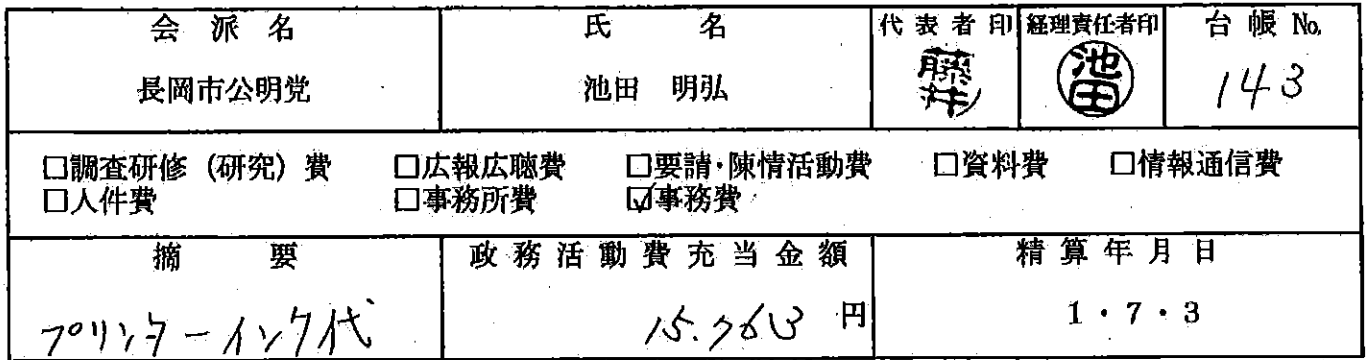 会派名 氏名 代表者印 経理責任者印 台帳No.
長岡市公明党 池田 明弘 藤井 池田 143
□調査研修（研究）費 □広報広聴費 □要請・陳情活動費 □資料費 □情報通信費
□人件費 □事務所費 ☑事務費
摘要 政務活動費充当金額 精算年月日
プリンターインク代 15.763円 1・7・3